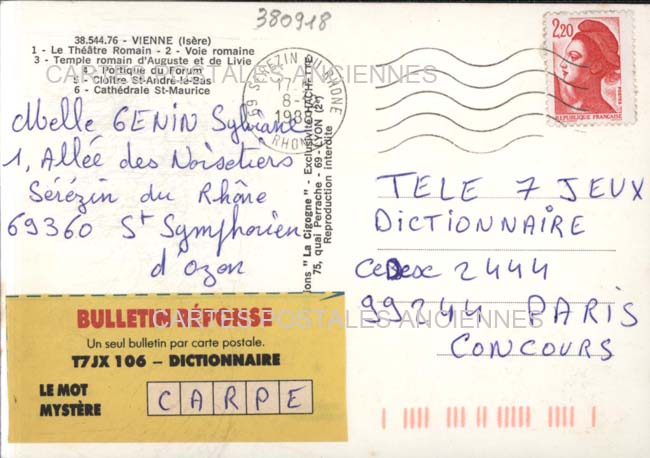 380918
38.544.76 - VIENNE (Isère)
1 - Le Théâtre Romain - 2 - Voie romaine
3 - Temple romain d'Auguste et de Livie
4 - Portique du Forum
5 - Cloître St-André-le-Bas
6 - Cathédrale St-Maurice
CARTES POSTALES ANCIENNES
69 SEREZIN DU RHONE
17
8
RHONE
2,20
POSTES
REPUBLIQUE FRANCAISE
Melle GENIN Sylviane
1, Allée des Noisetiers
Sérézin du Rhône
69360 St Symphorien
d'Ozon
ions "La Cigogne" - Exclusivité HACHETTE
75, quai Perrache - 69-LYON (2e)
Reproduction interdite
TELE 7 JEUX
DICTIONNAIRE
Cedex 2444
99244 PARIS
CONCOURS
BULLETIN-RÉPONSE
CARTES POSTALES ANCIENNES
Un seul bulletin par carte postale.
T7JX 106 – DICTIONNAIRE
LE MOT
MYSTÈRE
CARPE